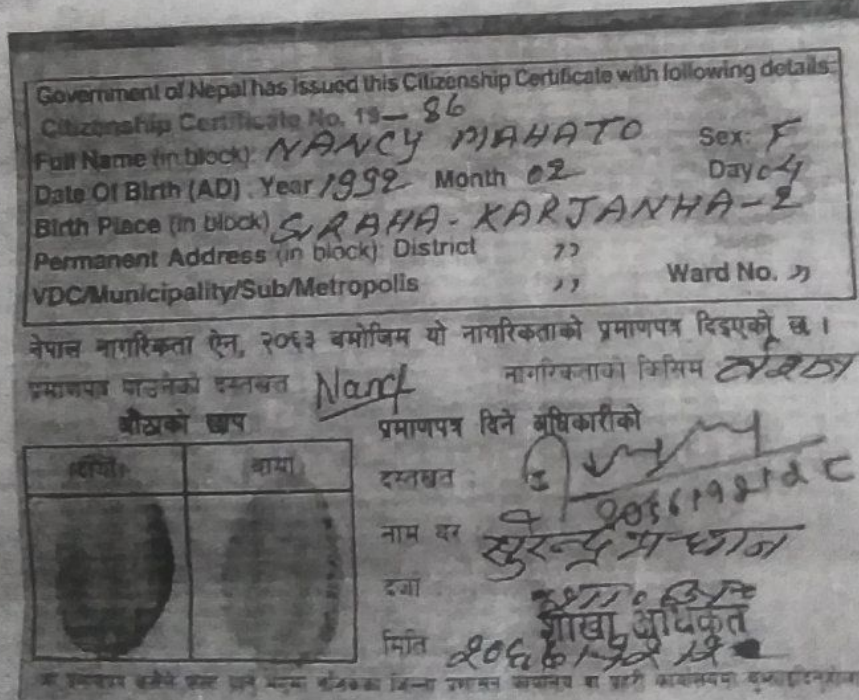 Government of Nepal has issued this Citizenship Certificate with following details:
Citizenship Certificate No. 19-86
Full Name (in block): NANCY MAHATO Sex: F
Date Of Birth (AD) Year 1992 Month 02 Day 04
Birth Place (in block) SIRAHA-KARJANHA-2
Permanent Address (in block) District ,,
VDC/Municipality/Sub/Metropolis ,, Ward No. ,,
नेपाल नागरिकता ऐन, २०६३ बमोजिम यो नागरिकताको प्रमाणपत्र दिइएको छ ।
प्रमाणपत्र पाउनेको दस्तखत नागरिकताको किसिम वंशज
औंठाको छाप प्रमाणपत्र दिने अधिकारीको
दायाँ बायाँ दस्तखत
नाम थर सुरेन्द्र प्रधान
दर्जा
शाखा अधिकृत
मिति